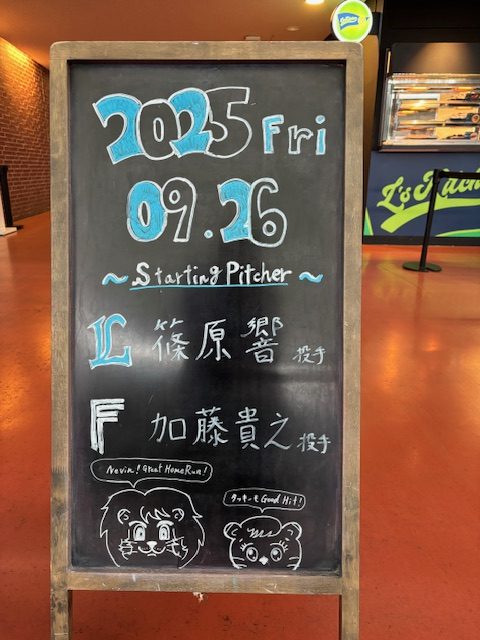 2025 Fri
09.26
~Starting Pitcher~
L 篠原 響 投手
F 加藤貴之 投手
Nevin! Great HomeRun!
タッキーもGood Hit!
L's